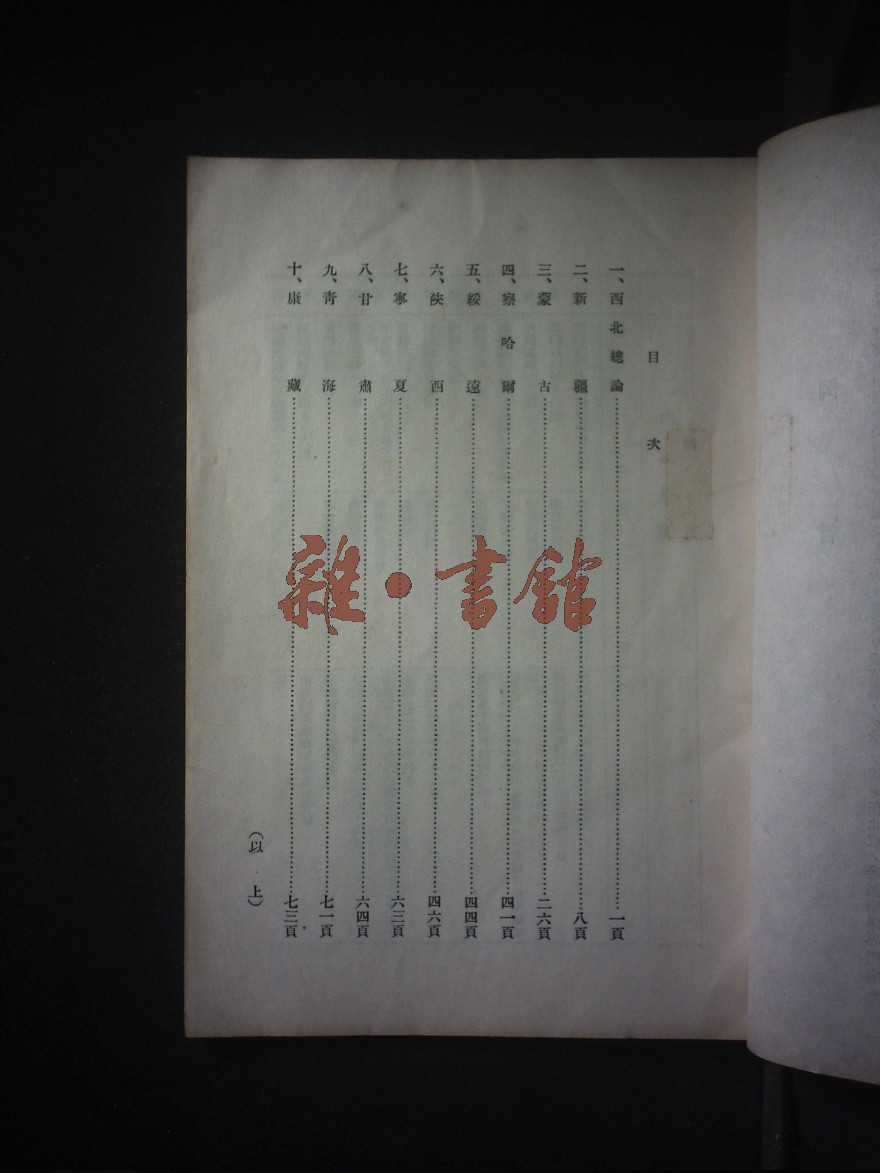 目次
一、西北總論……一頁
二、新疆……八頁
三、蒙古……二六頁
四、察哈爾……四一頁
五、綏遠……四四頁
六、陝西……四六頁
七、寧夏……六三頁
八、甘肅……六四頁
九、青海……七一頁
十、康藏……七三頁
（以上）
雜·書館